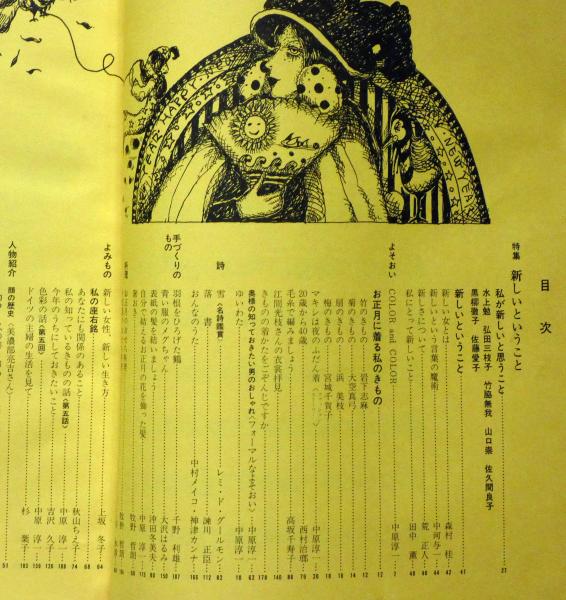 目次
特集 新しいということ
私が新しいと思うこと 27
水上勉 弘田三枝子 竹脇無我 山口崇 佐久間良子
黒柳徹子 佐藤愛子
新しいということ 41
新しい女とは 森村桂 42
新しいという言葉の魔術 中河与一 44
新しさについて 荒正人
私にとって新しいこと 田中薫
よそおい
COLOR and COLOR 中原淳一 7
お正月に着る私のきもの 12
竹のきもの 岩下志麻 12
菊のきもの 大空真弓
扇のきもの 浜美枝
梅のきもの 宮城千賀子
マキシは昔のふだん着 中原淳一
20歳から40歳 西村治郎
毛糸で編みましょう 高坂千寿子
江間光枝さんの衣裳拝見 140
きもの別の着かたをごぞんじですか 178
奥様の知っておきたい男のおしゃれ〈フォーマルなよそおい〉 中原淳一
ゆいわた 中原淳一 18
詩
雪〈名詩鑑賞〉 レミ・ド・グールモン 82
落書 諫川正臣 112
おんなのうた 中村メイコ・神津カンナ 166
手づくりのもの
羽根をひろげた鶴 千野利雄 187
青い服のノグちゃん 大沢はるみ 150
表紙の髪を結いましょう 沖田冬美夫
自分で結えるお正月の花を飾った髪 中原淳一
牧野哲朗
よみもの
新しい女性、新しい生き方 上坂冬子 64
私の座右銘 68
あなたにも関係のあること 秋山ちえ子 74
私の知っているきものの話〈第五話〉 中原淳一 188
今年のうちにしておきたいこと 吉沢久子 136
色彩の話〈第五回〉 中原淳一 159
ドイツの主婦の生活を見て 杉葉子 183
人物紹介
顔の歴史〈美濃部亮吉さん〉 51
FOR HAPPY
NEW YEAR